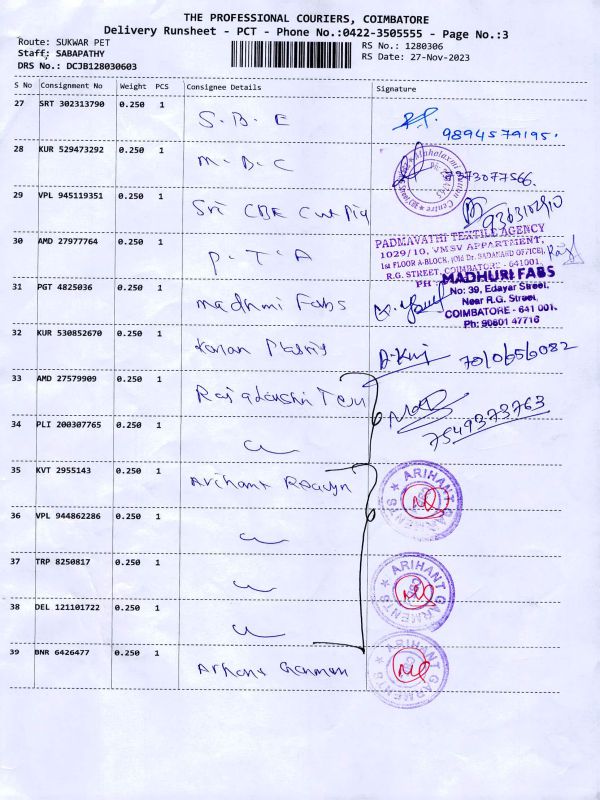 THE PROFESSIONAL COURIERS, COIMBATORE
Delivery Runsheet - PCT - Phone No.:0422-3505555 - Page No.:3
Route: SUKWAR PET
RS No.: 1280306
Staff: SABAPATHY
RS Date: 27-Nov-2023
DRS No.: DCJB128030603
S No Consignment No Weight PCS Consignee Details Signature
27 SRT 302313790 0.250 1 S.B.E
9894579195.
28 KUR 529473292 0.250 1 M.B.C
29 VPL 945119351 0.250 1 Sri CBE
30 AMD 27977764 0.250 1 P.T.A
PADMAVATHI TEXTILE AGENCY
1029/10, VMSV APPARTMENT,
1st FLOOR A-BLOCK, (Old Dr. SADANAND OFFICE),
R.G. STREET, COIMBATORE - 641001.
PH
31 PGT 4825036 0.250 1 Madhuri Fabs
MADHURI FABS
No: 39, Edayar Street,
Near R.G. Street,
COIMBATORE - 641 001.
Ph: 90601 47716
32 KUR 530852670 0.250 1
7010656082
33 AMD 27579909 0.250 1
7549373763
34 PLI 200307765 0.250 1
35 KVT 2955143 0.250 1 Arihant
ARIHANT GARMENTS
36 VPL 944862286 0.250 1
37 TRP 8250817 0.250 1
ARIHANT GARMENTS
38 DEL 121101722 0.250 1
39 BNR 6426477 0.250 1
ARIHANT GARMENTS